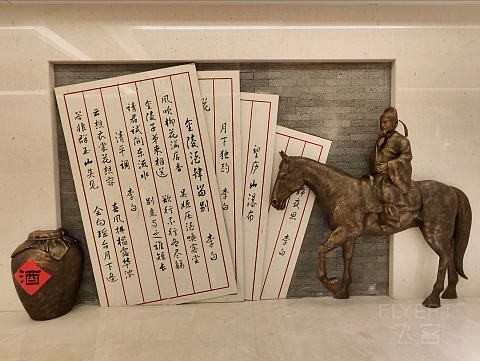 金陵酒肆留别 李白
风吹柳花满店香 吴姬压酒唤客尝
金陵子弟来相送 欲行不行各尽觞
请君试问东流水 别意与之谁短长
清平调 李白
云想衣裳花想容 春风拂槛露华浓
若非群玉山头见 会向瑶台月下逢
花
月下独酌 李白
望庐山瀑布
夜思 李白
酒
FLYERT
飞客